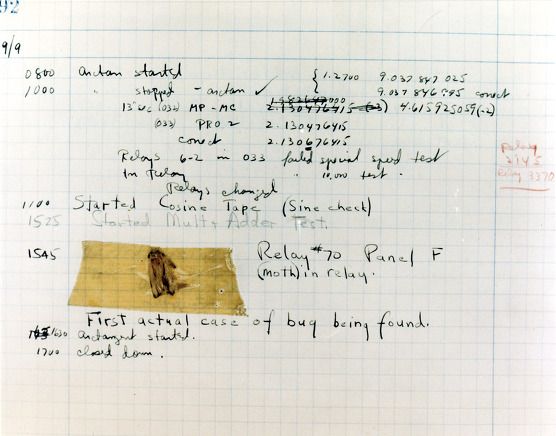 92
9/9
0800 Antan started { 1.2700 9.037 847 025
1000 " stopped - antan ✓ 9.037 846 995 correct
13"uc (032) MP - MC 2.130476415 (-3) 4.615925059(-2)
(033) PRO 2 2.130476415
correct 2.130676415
Relays 6-2 in 033 failed special speed test
In Relay " 10,000 test .
Relays changed
Relay
2145
Relay 3370
1100 Started Cosine Tape (Sine check)
1525 Started Mult + Adder Test.
1545 Relay #70 Panel F
(moth) in relay.
First actual case of bug being found.
1630 antangent started.
1700 closed down.